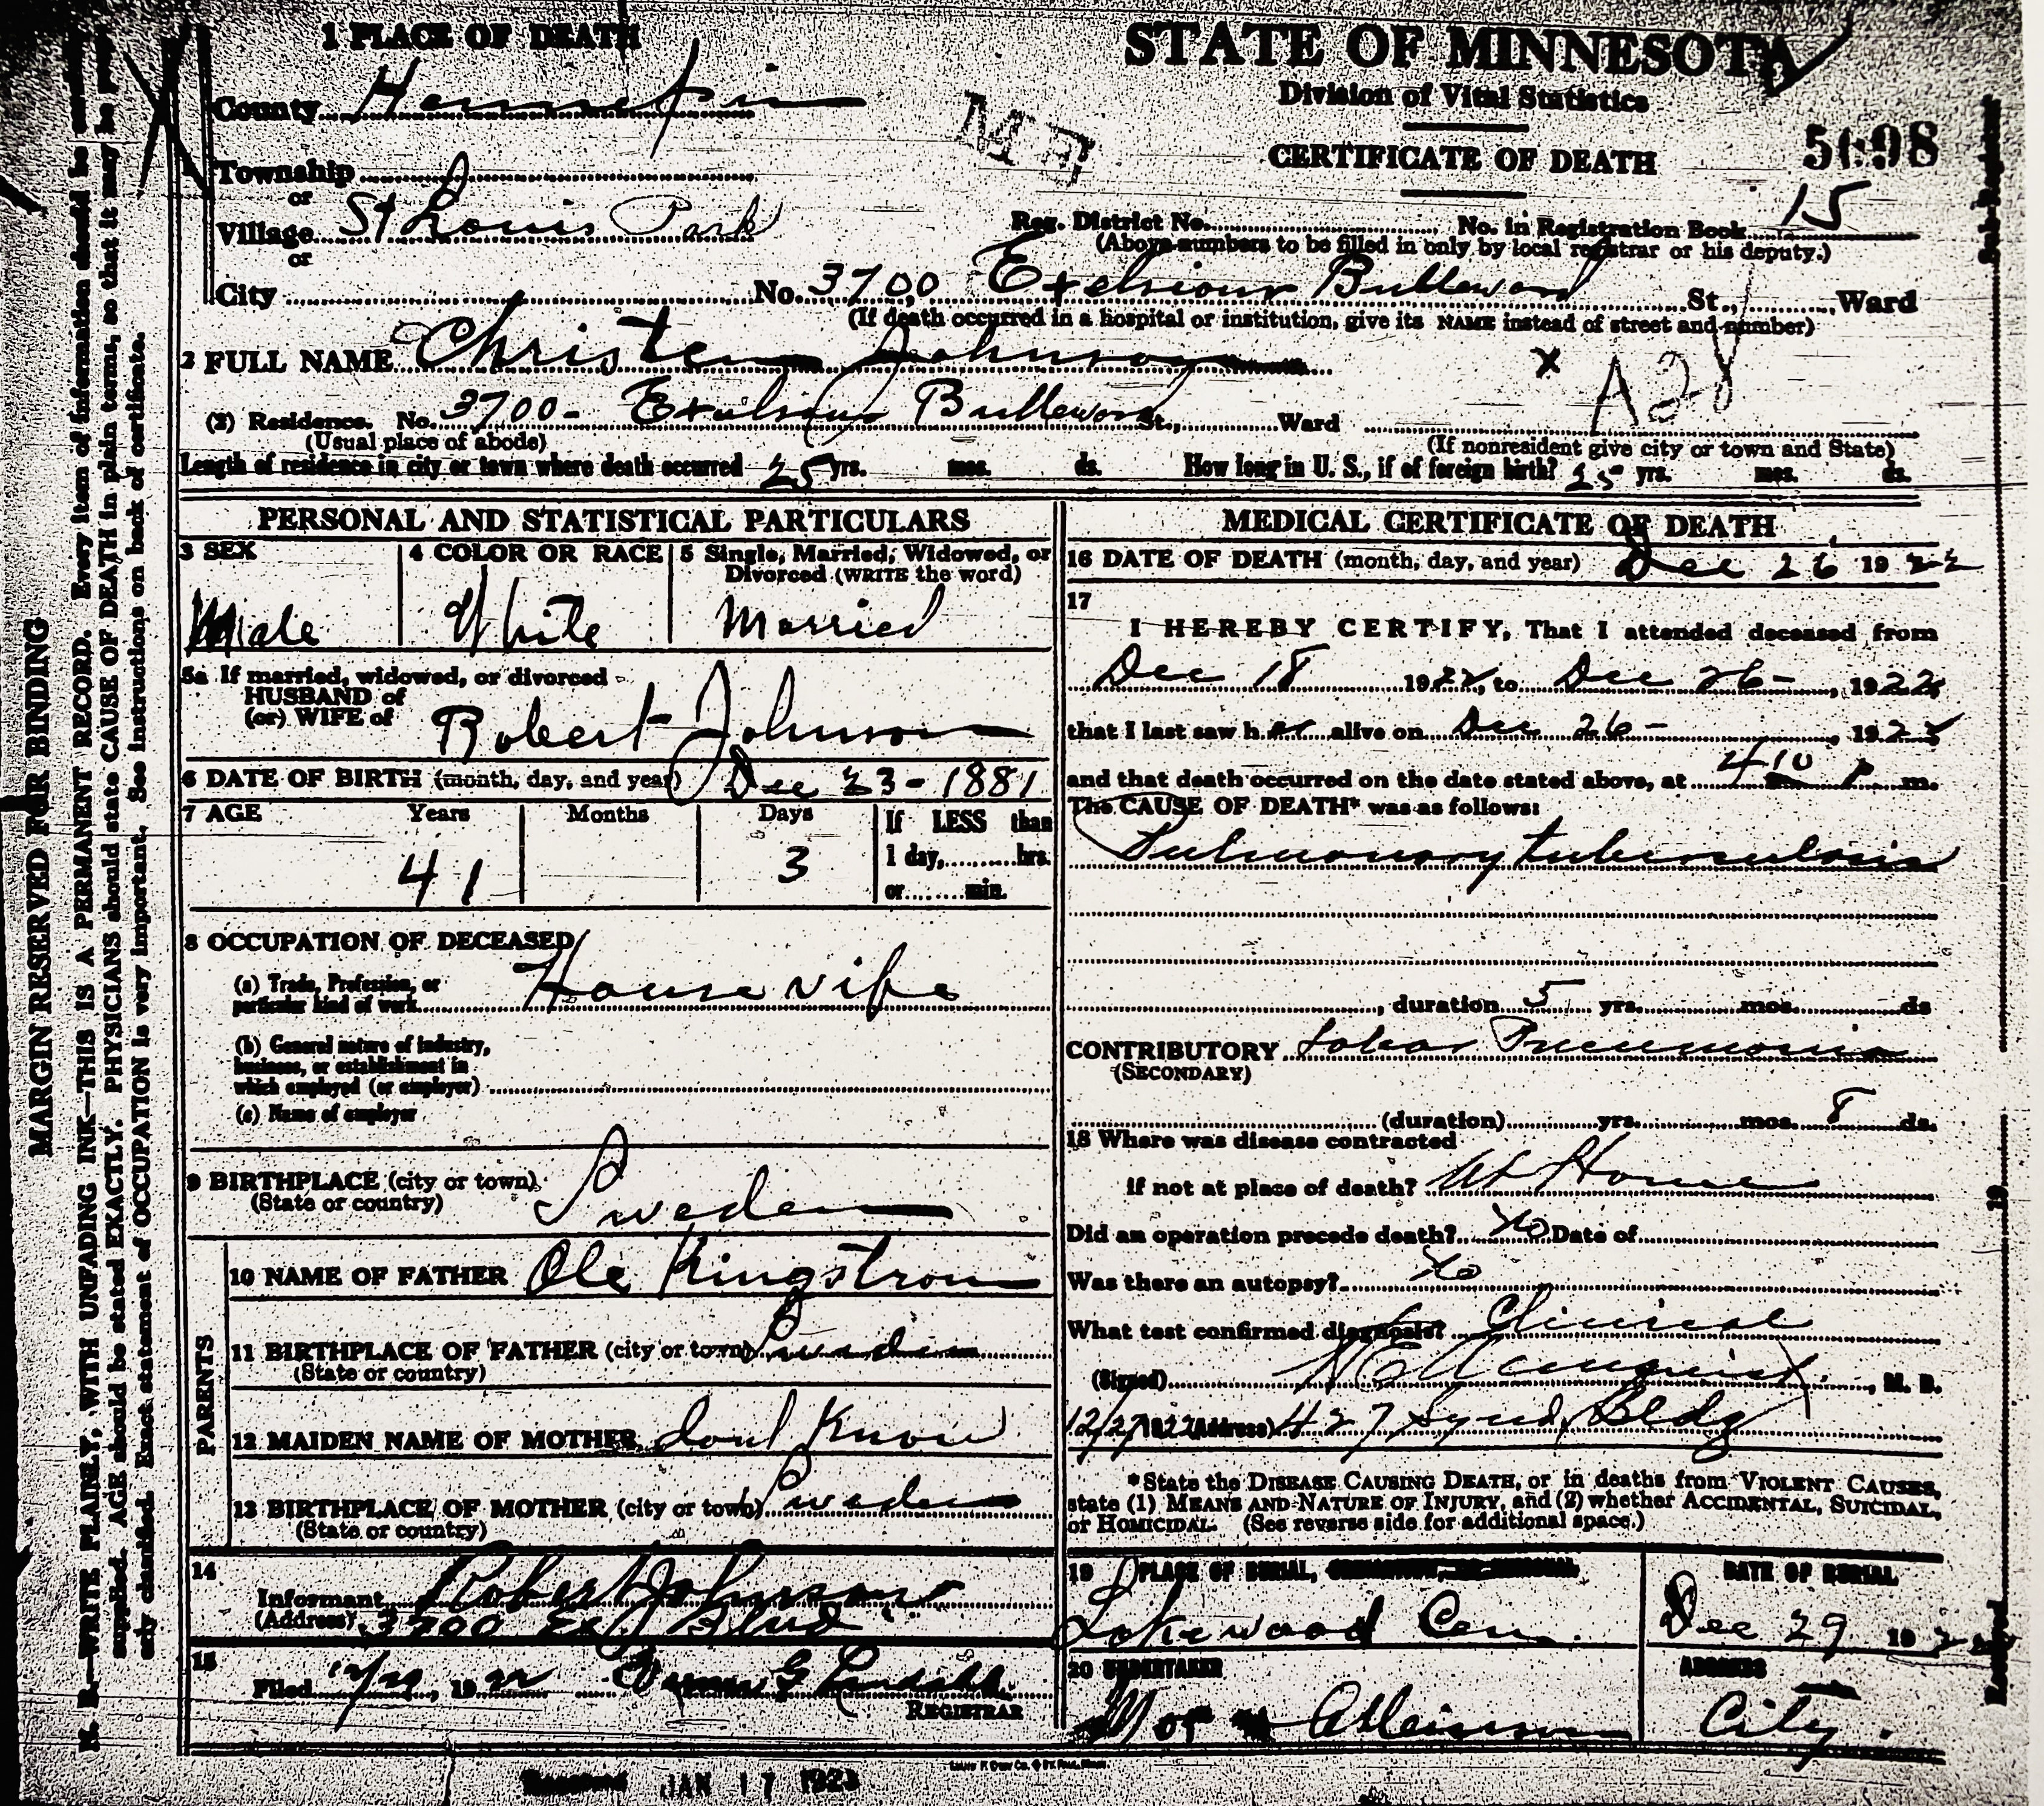 1 PLACE OF DEATH
STATE OF MINNESOTA
Division of Vital Statistics
CERTIFICATE OF DEATH
County Hennepin
Township
or
Village St Louis Park
or
City
15
Reg. District No. No. in Registration Book
(Above numbers to be filled in only by local registrar or his deputy.)
No. 3700 Exelsiour Bullevord St., Ward
(If death occurred in a hospital or institution, give its NAME instead of street and number)
2 FULL NAME Christen Johnson
x A28
(2) Residence. No. 3700- Bullevord St., Ward
(Usual place of abode)
(If nonresident give city or town and State)
Length of residence in city or town where death occurred 25 yrs. mos. ds. How long in U. S., if of foreign birth? 25 yrs. mos. ds.
PERSONAL AND STATISTICAL PARTICULARS
3 SEX
Male
4 COLOR OR RACE
White
5 Single, Married, Widowed, or
Divorced (WRITE the word)
Married
5a If married, widowed, or divorced
HUSBAND of
(or) WIFE of
Robert Johnson
6 DATE OF BIRTH (month, day, and year) Dec 23-1881
7 AGE Years Months Days If LESS than
1 day, hrs.
or min.
41 3
8 OCCUPATION OF DECEASED
(a) Trade, Profession, or
particular kind of work House vife
(b) General nature of industry,
business, or establishment in
which employed (or employer)
(c) Name of employer
9 BIRTHPLACE (city or town)
(State or country)
Sweden
PARENTS
10 NAME OF FATHER Ole Kingstrom
11 BIRTHPLACE OF FATHER (city or town) Sweden
(State or country)
12 MAIDEN NAME OF MOTHER dont Know
13 BIRTHPLACE OF MOTHER (city or town) Sweden
(State or country)
14
Informant Robert Johnson
(Address) 3700 Blvd
15
Filed 1922
REGISTRAR
MEDICAL CERTIFICATE OF DEATH
16 DATE OF DEATH (month, day, and year) Dec 26 1922
17
I HEREBY CERTIFY, That I attended deceased from
Dec 18 1922, to Dec 26-, 1922
that I last saw her alive on Dec 26-, 1922
and that death occurred on the date stated above, at 410 P m.
The CAUSE OF DEATH* was as follows:
Pulmonary tuberculosis
, duration 5 yrs. mos. ds
CONTRIBUTORY Lobar Pneumonia
(SECONDARY)
(duration) yrs. mos. 8 ds.
18 Where was disease contracted
if not at place of death? At Home
Did an operation precede death? No Date of
Was there an autopsy? No
What test confirmed diagnosis? Clinical
(Signed) , M. D.
12/27 1922 (Address) 427 Synd. Bldg
*State the DISEASE CAUSING DEATH, or in deaths from VIOLENT CAUSES,
state (1) MEANS AND NATURE OF INJURY, and (2) whether ACCIDENTAL, SUICIDAL,
or HOMICIDAL. (See reverse side for additional space.)
19 PLACE OF BURIAL,
Lakewood Cem.
DATE OF BURIAL
Dec 29 1922
20 UNDERTAKER
ADDRESS
City.
JAN 17 1923
MARGIN RESERVED FOR BINDING
N. B.—WRITE PLAINLY, WITH UNFADING INK—THIS IS A PERMANENT RECORD. Every item of information should be
supplied. AGE should be stated EXACTLY. PHYSICIANS should state CAUSE OF DEATH in plain terms, so that it may be
erly classified. Exact statement of OCCUPATION is very important. See instructions on back of certificate.